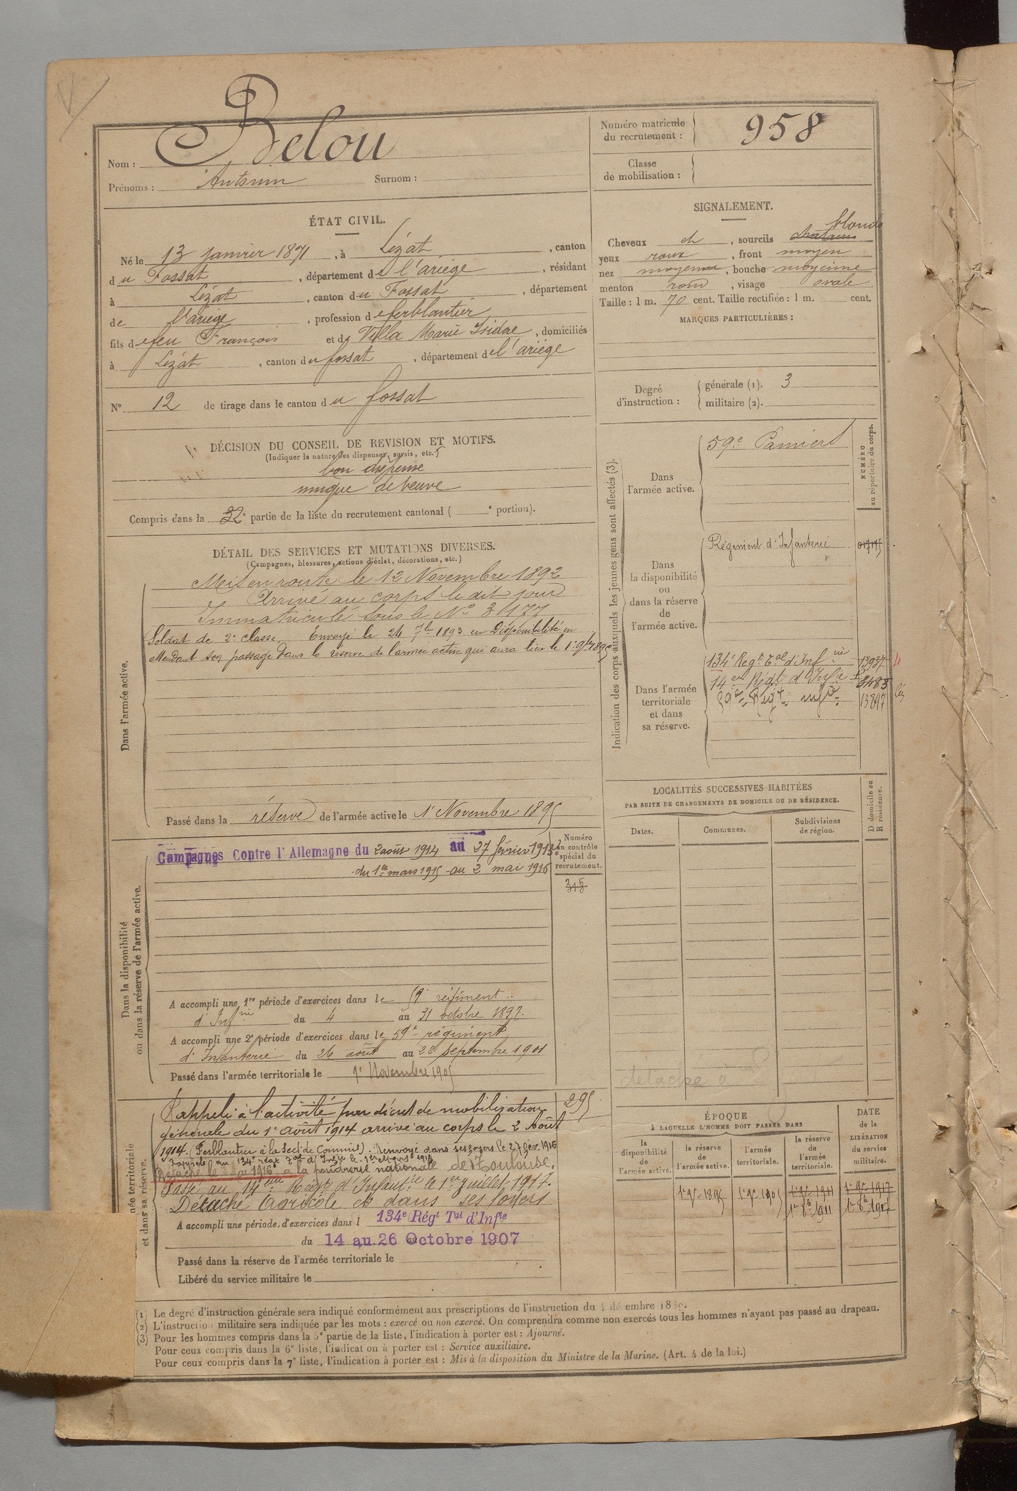 Nom : Belou
Prénoms : Antonin Surnom :
Numéro matricule
du recrutement : 958
Classe
de mobilisation :
ÉTAT CIVIL.
Né le 13 janvier 1871, à Lézat, canton
du Fossat, département de l'ariège, résidant
à Lézat, canton du Fossat, département
de l'ariege, profession de ferblantier
fils de feu François et de Villa Marie Isidae, domiciliés
à Lézat, canton du fossat, département de l'ariège
N° 12 de tirage dans le canton du fossat
SIGNALEMENT.
blonds
Cheveux ch, sourcils chatains
yeux roux, front moyen
nez moyenne, bouche moyenne
menton rond, visage ovale
Taille : 1 m. 70 cent. Taille rectifiée : 1 m. cent.
MARQUES PARTICULIÈRES :
Degré
d'instruction :
générale (1). 3
militaire (2).
DÉCISION DU CONSEIL DE REVISION ET MOTIFS.
(Indiquer la nature des dispenses, sursis, etc.)
bon dispense
unique de veuve
Compris dans la 32e partie de la liste du recrutement cantonal ( e portion).
DÉTAIL DES SERVICES ET MUTATIONS DIVERSES.
(Campagnes, blessures, actions d'éclat, décorations, etc.)
Dans l'armée active.
Mis en route le 12 Novembre 1892
Arrivé au corps le dit jour
Immatriculé sous le N° 3177
Soldat de 2e classe. Envoyé le 24 7bre 1893 en Disponibilité en
attendant son passage dans la réserve de l'armée active qui aura lieu le 1er 9bre 1895
Passé dans la réserve de l'armée active le 1er Novembre 1895
Indication des corps auxquels les jeunes gens sont affectés (3).
NUMÉRO
au répertoire du corps.
Dans
l'armée active.
59e Pamiers
Dans
la disponibilité
ou
dans la réserve
de
l'armée active.
Régiment d'Infanterie
Dans l'armée
territoriale
et dans
sa réserve.
134e Regt Tal d'Infrie 13937
14em Regt d'Infie 3485
59e Regt infie 13897
LOCALITÉS SUCCESSIVES HABITÉES
PAR SUITE DE CHANGEMENTS DE DOMICILE OU DE RÉSIDENCE.
Dates. Communes. Subdivisions
de région.
D domicile ou
R résidence.
Dans la disponibilité
ou dans la réserve de l'armée active.
Numéro
au contrôle
spécial du
recrutement.
Campagnes Contre l'Allemagne du 2 août 1914 au 27 février 1915
du 1er mars 1915 au 2 mai 1916
315
A accompli une 1re période d'exercices dans le 59e régiment
d'Infrie du 4 au 31 octobre 1897
A accompli une 2e période d'exercices dans le 59e régiment
d'Infanterie du 26 août au 22 septembre 1901
Passé dans l'armée territoriale le 1er Novembre 1905
détaché à
Rappelé à l'activité par décret de mobilisation
générale du 1er août 1914 arrivé au corps le 2 Août
1914. (Ferblantier à la Sect. de Commis). Renvoyé dans ses foyers le 27 fév. 1915
Détaché le 2 Mai 1916 à la poudrerie nationale de Toulouse.
Passé au 14em Régt d'Infantie le 1er juillet 1917.
Détaché Agricole et dans ses foyers
295
A accompli une période d'exercices dans l 134e Régt Tal d'Infie
du 14 au 26 Octobre 1907
Passé dans la réserve de l'armée territoriale le
Libéré du service militaire le
ÉPOQUE
À LAQUELLE L'HOMME DOIT PASSER DANS
la
disponibilité
de
l'armée active.
la réserve
de
l'armée active.
l'armée
territoriale.
la réserve
de
l'armée
territoriale.
DATE
de la
LIBÉRATION
du service
militaire.
1er 9bre 1895 1er 9bre 1905 1er 9bre 1911 1er 9bre 1917
(1) Le degré d'instruction générale sera indiqué conformément aux prescriptions de l'instruction du 4 décembre 18
(2) L'instruction militaire sera indiquée par les mots : exercé ou non exercé. On comprendra comme non exercés tous les hommes n'ayant pas passé au drapeau.
(3) Pour les hommes compris dans la 5e partie de la liste, l'indication à porter est : Ajourné.
Pour ceux compris dans la 6e liste, l'indication à porter est : Service auxiliaire.
Pour ceux compris dans la 7e liste, l'indication à porter est : Mis à la disposition du Ministre de la Marine. (Art. 4 de la loi.)